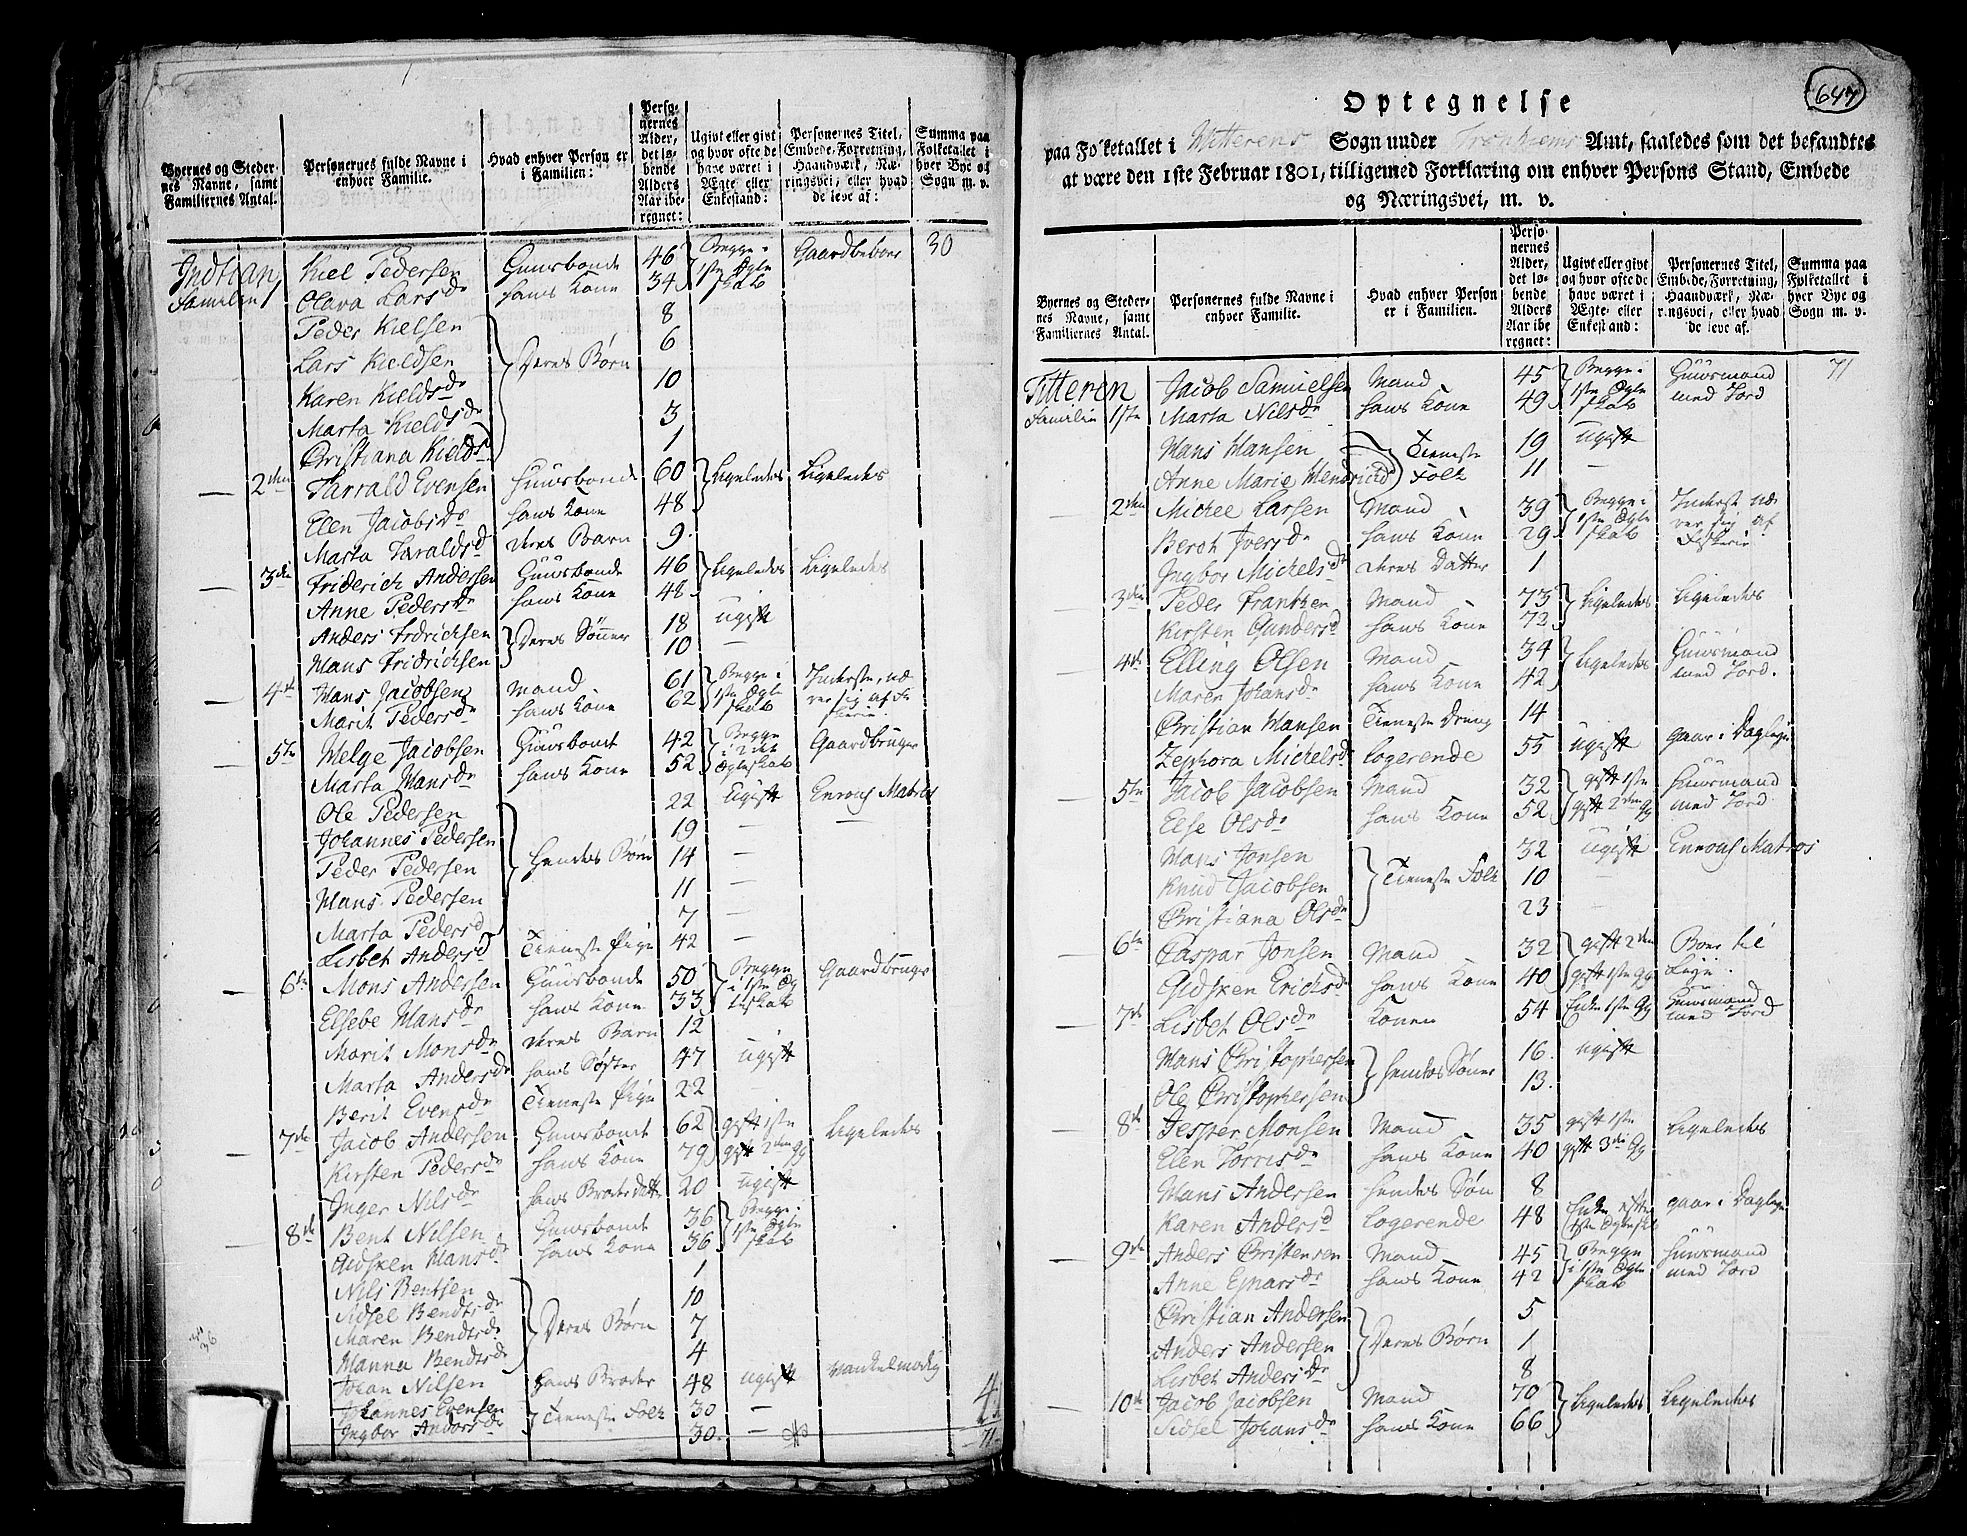 Byernes og Steder-
nes Navne, samt
Familiernes Antal.
Personernes fulde Navne i
enhver Familie.
Hvad enhver Person er
i Familien:
Perso-
nernes
Alder,
det lø-
bende
Alders
Aar ibe-
regnet:
Ugivt eller givt
og hvor ofte de
have været i
Ægte eller
Enkestand:
Personernes Titel,
Embede, Forretning,
Haandværk, Næ-
ringsvei, eller hvad
de leve af:
Summa paa
Folketallet i
hver Bye og
Sogn m. v.
Indtian Kiel Pedersen Huusbonde 46 Begge i 1ste Ægteskab Gaardbeboer 30
Familie 1 Olava Larsdr hans Kone 34
Peder Kielsen Deres Børn 8
Lars Kieldsen 6
Karen Kieldsdr 10
Marta Kieldsdr 3
Christiana Kieldsd 1
2den Tarrald Evensen Huusbonde 60 Ligeledes Ligeledes
Elen Jacobsdr hans Kone 48
Marta Taraldsd deres Barn 9
3die Friderich Andersen Huusbonde 46 Ligeledes Ligeledes
Anne Pedersdr hans Kone 48
Anders Fridrichsen Deres Sønner 18 ugift
Hans Fridrichsen 10 —
4de Hans Jacobsen Mand 61 Begge i 1ste Ægteskab Inderste, nærer sig af Fiskerie
Marit Pedersdr hans Kone 62
5te Helge Jacobsen Huusbond 42 Begge i 2det Ægteskab Gaardbruger
Marta Hansdr hans Kone 52
Ole Pedersen Hendes Børn 22 Ugift Enroul Matros
Johannes Pedersen 19 — —
Peder Pedersen 14 —
Hans Pedersen 11 —
Marta Pedersd 7 —
Lisbet Andersd Tieneste Pige 42 —
6te Mons Andersen Huusbonde 50 Begge i 1ste Ægteskab Gaardbruger
Elsebe Hansdr hans Kone 33
Marit Monsdr deres Barn 12
Marta Andersdr hans Søster 47 ugift
Berit Evensdr Tieneste Pige 22
7de Jacob Andersen Huusbond 62 gift 1ste Ligeledes
Kirsten Pedersdr hans Kone 79 gift 2den Gg
Inger Nilsdr hans Broder Datter 20 ugift
8de Bent Nilsen Huusbond 36 Begge i 1ste Ægteskab
Gidsken Hansdr hans Kone 36
Nils Bentsen Deres Børn 1
Sidsel Bendtsdr 10
Maren Bendtsdr 7
Hanna Bendtsdr 4
Johan Nilsen hans Broder 48 ugift Vankelmodig
Johannes Evensen Tieneste Folk 30 —
Ingbor Andersdr 30 —
71
647
Optegnelse
paa Folketallet i Hitterens Sogn under Tronhiems Amt, saaledes som det befandtes
at være den 1ste Februar 1801, tilligemed Forklaring om enhver Persons Stand, Embede
og Næringsvei, m. v.
Byernes og Steder-
nes Navne, samt
Familiernes Antal.
Personernes fulde Navne i
enhver Familie.
Hvad enhver Person
er i Familien.
Perso-
nernes
Alder,
det lø-
bende
Alders
Aar ibe
regnet:
Ugivt eller givt
og hvor ofte de
have været i
Ægte- eller
Enkestand:
Personernes Titel,
Embede, Forretning,
Haandværk, Næ-
ringsvei, eller hvad
de leve af.
Summa paa
Folketallet i
hver Bye og
Sogn m. v.
Titteren Jacob Samuelsen Mand 45 Begge i 1ste Ægteskab Huusmand med Jord 71
Familie 1ste Marta Nilsdr hans Kone 49
Hans Hansen Tieneste Folk 19 ugift
Anne Marie Hendrichsd 11 —
2den Michel Larsen Mand 39 Begge i 1ste Ægteskab Inderste nærer sig af Fiskerie
Beroh Iversdr hans Kone 29
Ingbor Michelsdr deres Datter 1
3die Peder Frantzen Mand 73 Ligeledes Ligeledes
Kirsten Gundersd hans Kone 72
4de Elling Olsen Mand 34 Ligeledes Huusmand med Jord.
Maren Johansdr hans Kone 42
Christian Hansen Tieneste Dreng 14
Zephora Michelsdr logerende 55 ugift gaar i Dagleje
5te Jacob Jacobsen Mand 32 gift 1ste Huusmand med Jord
Else Olsdr hans Kone 52 gift 2den Gg
Hans Jonsen Tieneste Folk 32 ugift Enroul Matros
Knud Jacobsen 10 —
Christiana Olsdr 23 —
6te Caspar Jonsen Mand 32 gift 2den Boer til Leje.
Gidsken Erichsdr hans Kone 40 gift 1ste Gg
7de Lisbet Olsdr Konen 54 Enke 1ste Gg Huusmand med Jord
Hans Christophersen hendes Søner 16 ugift
Ole Christophersen 13
8de Jesper Monsen Mand 35 gift 1ste Ligeledes
Elen Torrisdr hans Kone 40 gift 3die Gg
Hans Andersen hendes Søn 8
Karen Andersd logerende 48 Enke efter 1ste Ægteskab gaar i Dagleje
9de Anders Christensen Mand 45 Begge i 1ste Ægteskab Huusmand med Jord
Anne Ejnarsdr hans Kone 42
Christian Andersen Deres Børn 5
Anders Andersen 1
Lisbet Andersdr 8
10de Jacob Jacobsen Mand 70 Ligeledes Ligeledes
Sidsel Johansdr hans Kone 66